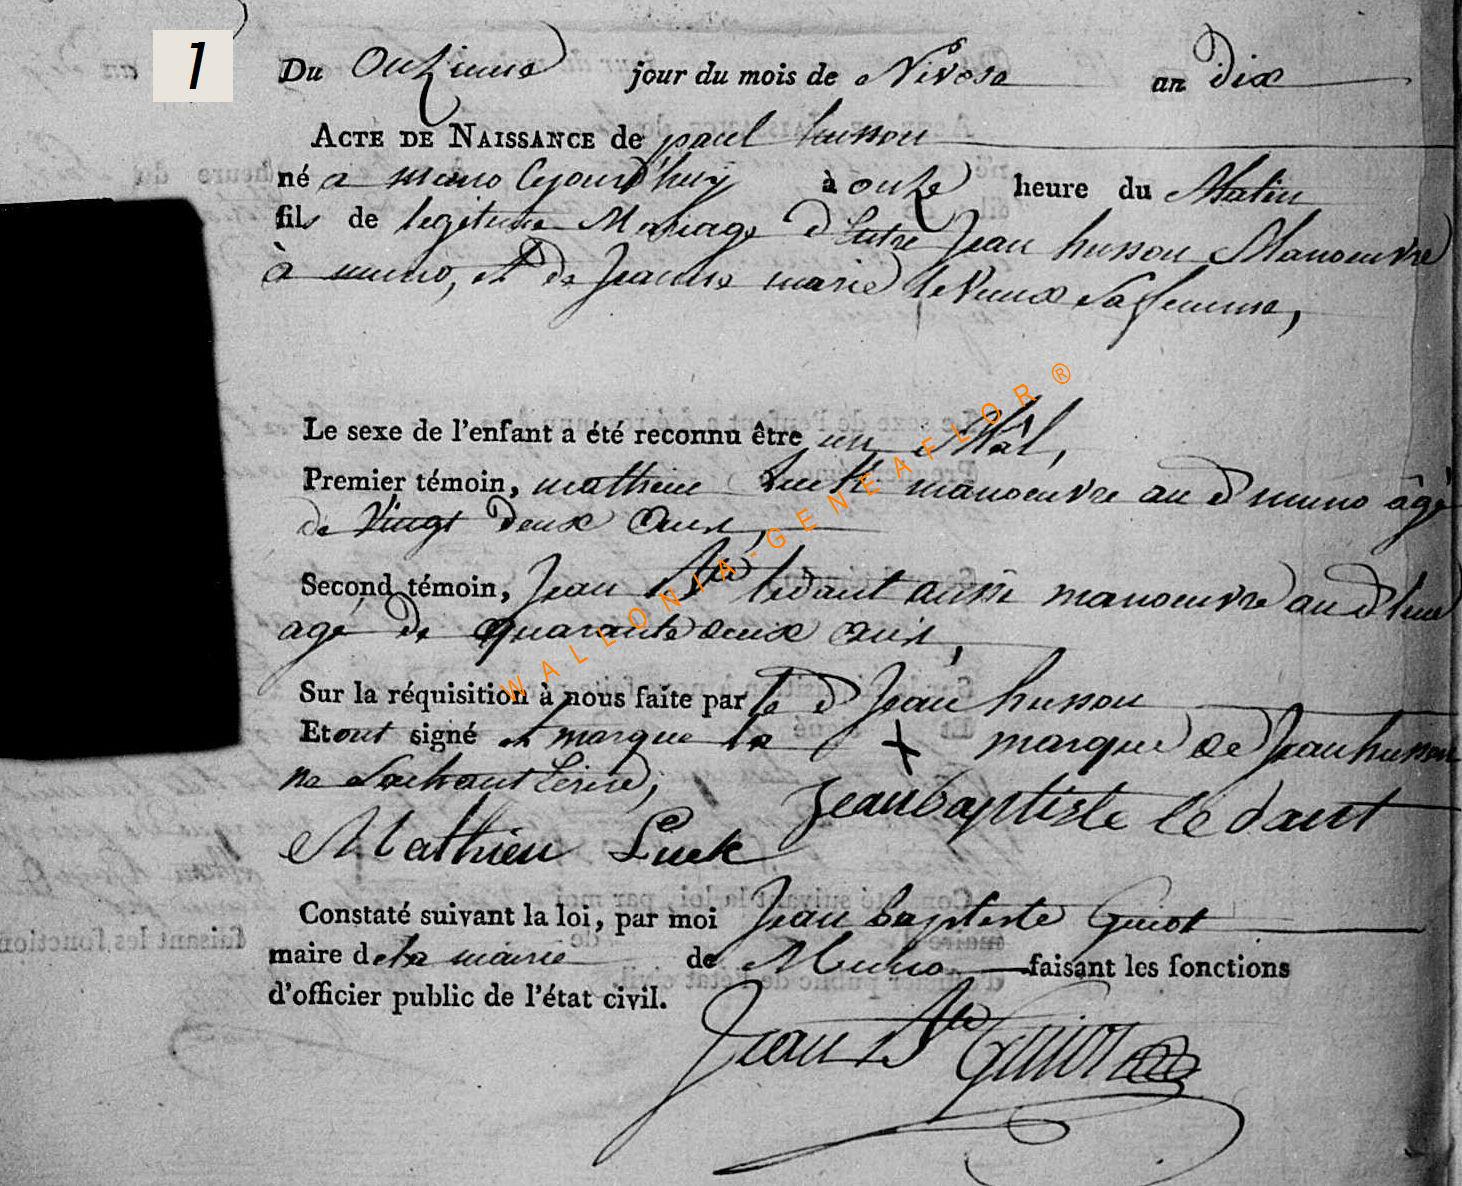 1
Du Onzieme jour du mois de Nivose an dix
ACTE DE NAISSANCE de paul husson
né a muno Cejourd'huy à onze heure du Matin
fils de legitime Mariage d'Entre Jean husson Manoeuvre
à muno, et de Jeanne marie leVieux Sa femme,
Le sexe de l'enfant a été reconnu être un Mâl,
Premier témoin, mathieu Luck manoeuvre au d muno âgé
de Vingt deux Ans,
Second témoin, Jean Bte ledant aussi manoeuvre au d lieu
agé de quarante deux Ans,
Sur la réquisition à nous faite par le d Jean husson
Et ont signé et marque la X marque de Jean husson
ne Sachant Ecrire,
Jean baptiste le dant
Mathieu Luck
Constaté suivant la loi, par moi Jean baptiste Guiot
maire de la mairie de Muno faisant les fonctions
d'officier public de l'état civil.
Jean Bte Guiot
WALLONIA-GENEAFLOR®